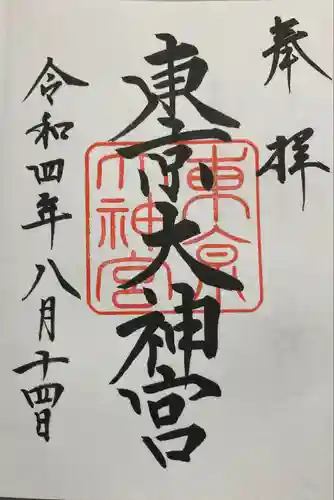 奉拝
東京大神宮
東京大神宮
令和四年八月十四日